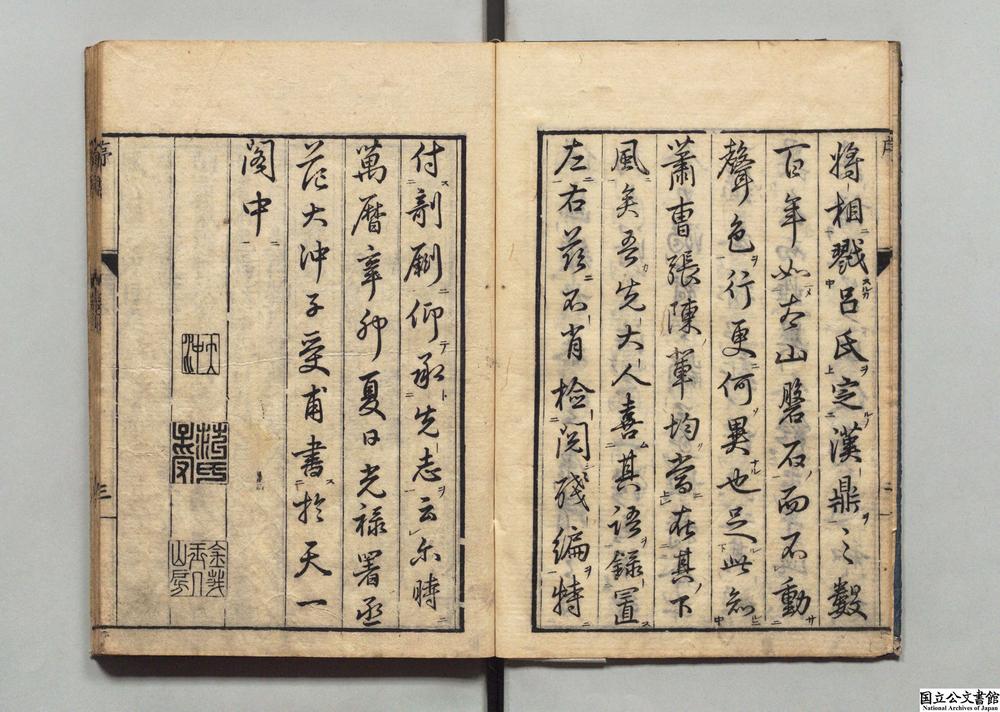 将相戮呂氏定漢鼎〻数
百年如太山磐石而不動
聲色行更何異也足此知
蕭曹張陳輩均當在其下
風矣吾先大人喜其語録置
左右茲不肖檢閲殘編特
付剞劂仰承先志云尓時
萬曆辛卯夏日光禄署丞
范大冲子受甫書於天一
閣中
大冲
国立公文書館
National Archives of Japan